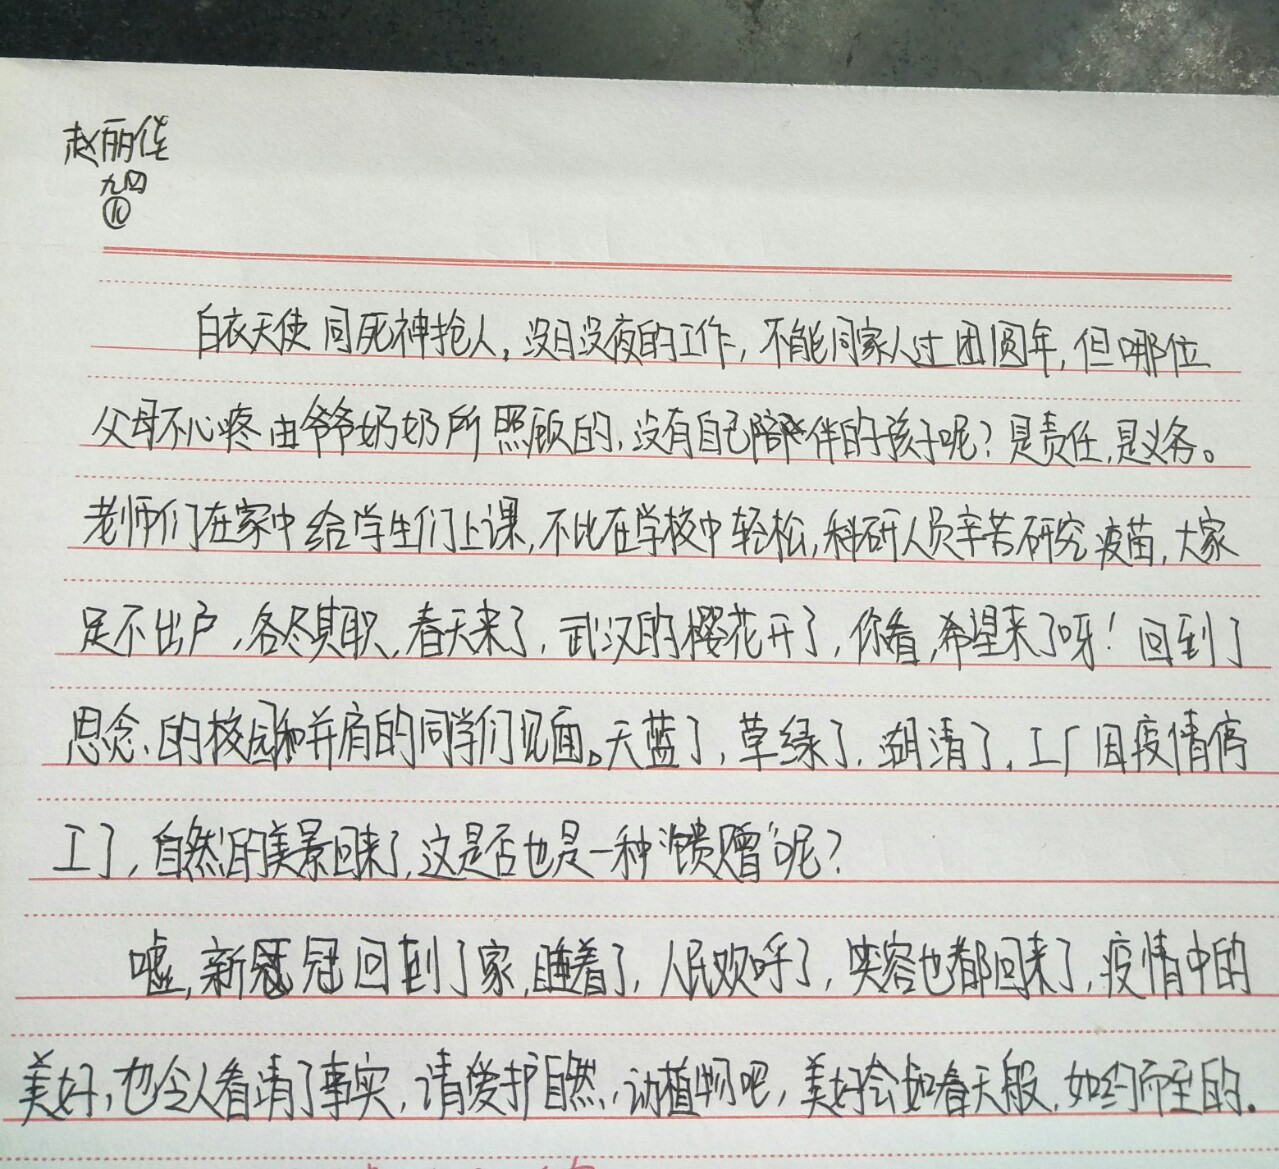 赵丽佳
九四
⑩
白衣天使同死神抢人，没日没夜的工作，不能同家人过团圆年，但哪位
父母不心疼由爷爷奶奶所照顾的，没有自己陪伴的孩子呢？是责任，是义务。
老师们在家中给学生们上课，不比在学校中轻松，科研人员辛苦研究疫苗，大家
足不出户，各尽其职，春天来了，武汉的樱花开了，你看，希望来了呀！回到了
思念、的校园和并肩的同学们见面。天蓝了，草绿了，湖清了，工厂因疫情停
工了，自然的美景回来了，这是否也是一种“馈赠”呢？
嘘，新冠回到了家，睡着了，人民欢呼了，笑容也都回来了，疫情中的
美好，也令人看清了事实，请爱护自然，动植物吧，美好会如春天般，如约而至的。